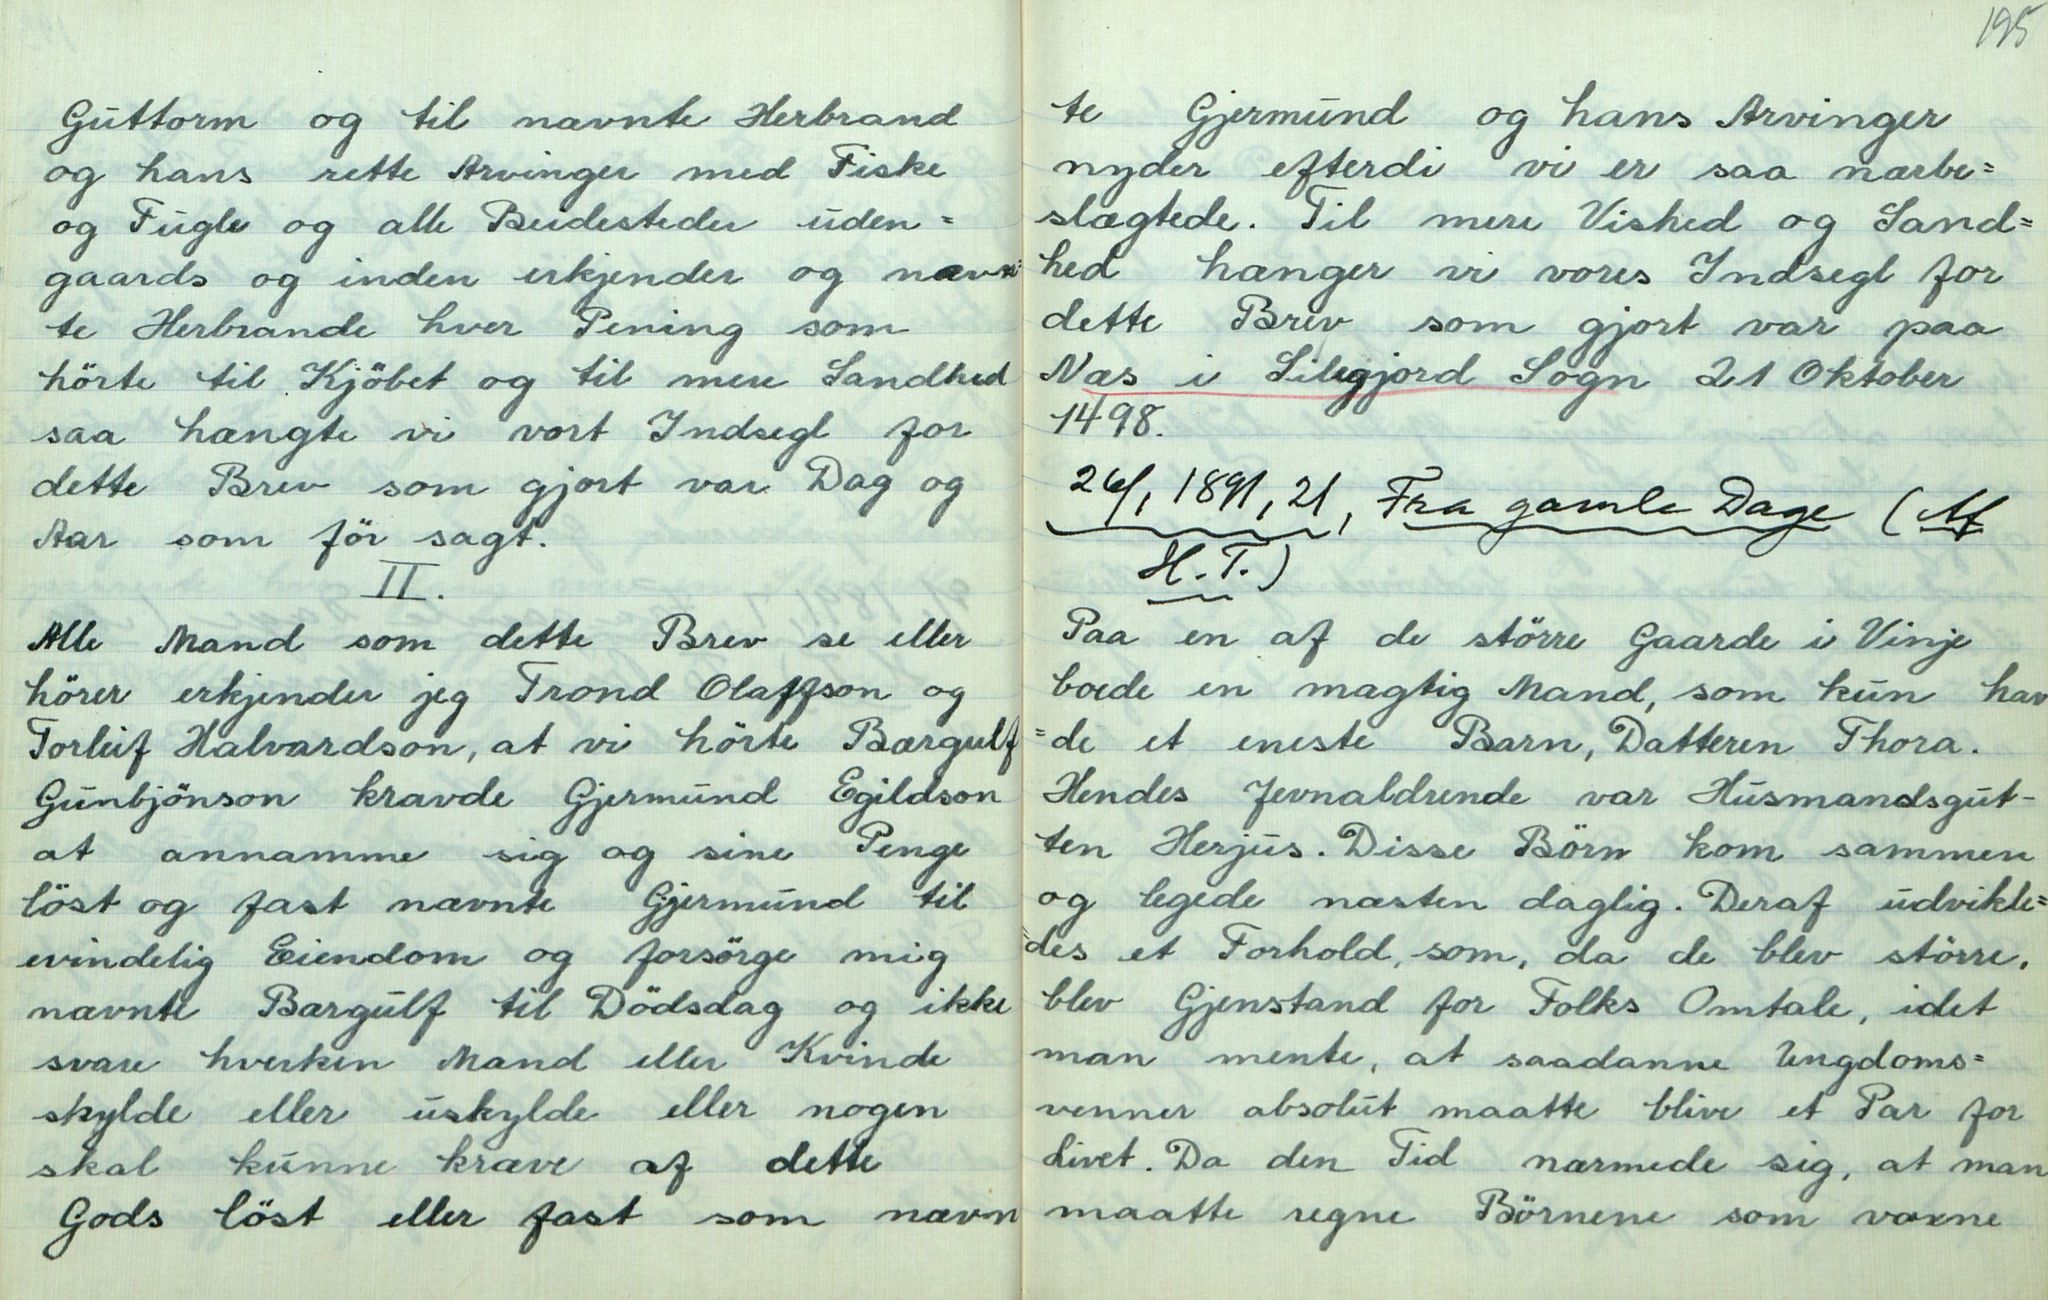 Guttorm og til nævnte Herbrand
og hans rette Arvinger med Fiske
og Fugle og alle Beidesteder uden=
gaards og inden erkjender og nævn=
te Herbrande hver Pening som
hörte til Kjöbet og til mere Sandhed
saa hængte vi vort Indsegl for
dette Brev som gjort var Dag og
Aar som för sagt.
II.
Alle Mænd som dette Brev se eller
hörer erkjender jeg Trond Olaffson og
Torleif Halvardson, at vi hörte Bærgulf
Gunbjönson kravde Gjermund Egildson
at annamme sig og sine Penge
löst og fast nævnte Gjermund til
evindelig Eiendom og forsörge mig
nævnte Bærgulf til Dödsdag og ikke
svare hverken Mand eller Kvinde
skylde eller uskylde eller nogen
skal kunne kræve af dette
Gods löst eller fast som nævn
195
te Gjermund og hans Arvinger
nyder efterdi vi er saa nærbe=
slægtede. Til mere Vished og Sand=
hed hænger vi vores Indsegl for
dette Brev som gjort var paa
Næs i Lilegjord Sogn 21 Oktober
1498.
1891, 21, Fra gamle Dage (Af
H.T.)
Paa en af de större Gaarde i Vinje
boede en mægtig Mand, som kun hav
=de et eneste Barn, Datteren Thora.
Hendes Jevnaldrende var Husmandsgut-
ten Herjus. Disse Börn kom sammen
og legede næsten daglig. Deraf udvikle=
=des et Forhold, som, da de blev större,
blev Gjenstand for Folks Omtale, idet
man mente, at saadanne Ungdoms=
venner absolut maatte blive et Par for
Livet. Da den Tid nærmede sig, at man
maatte regne Börnene som voxne